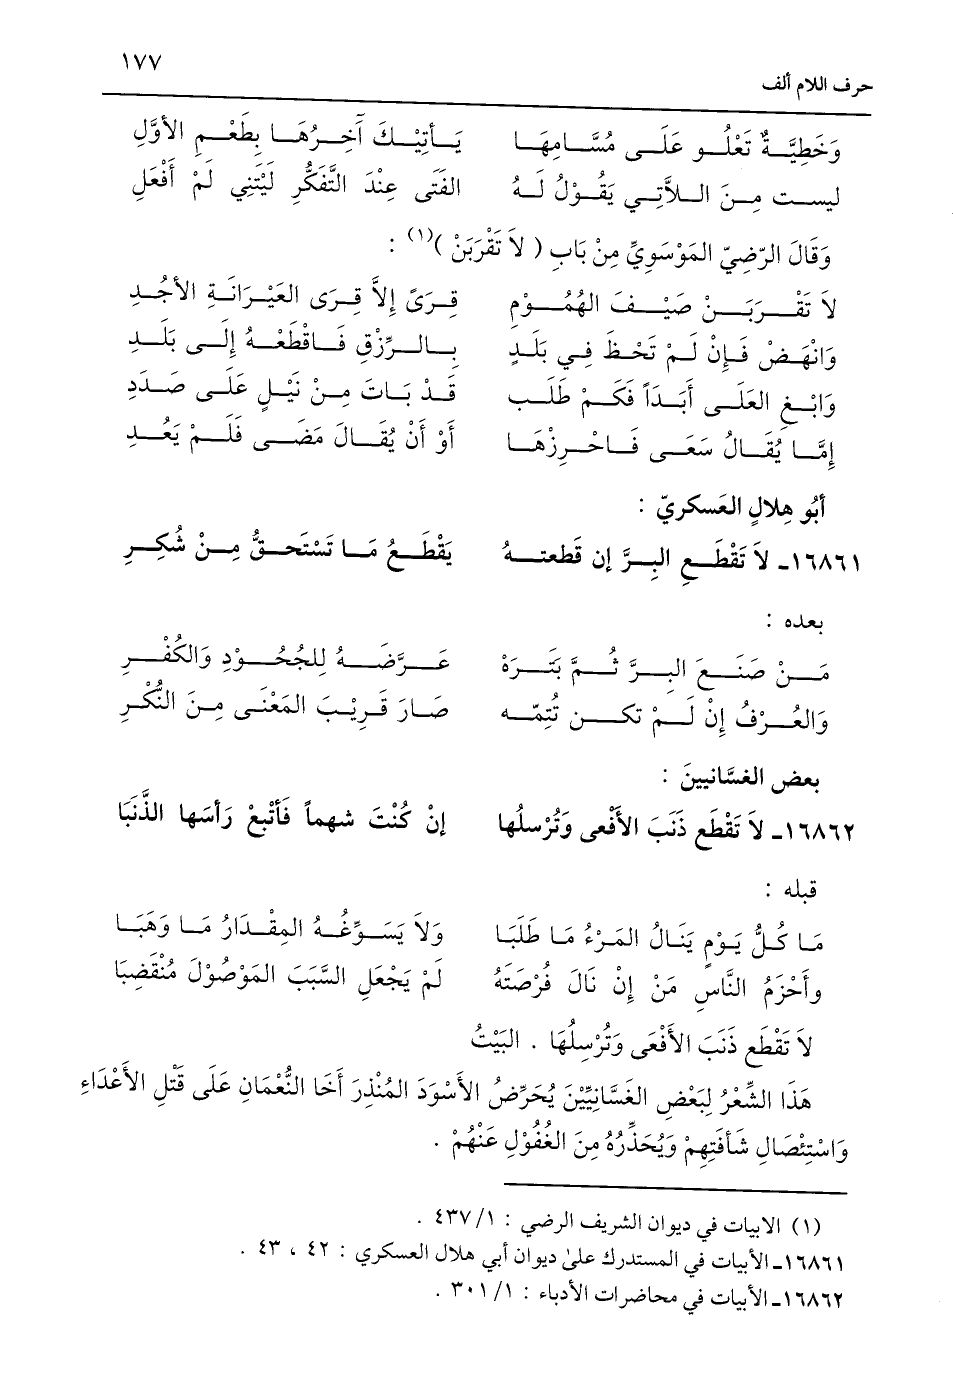 ١٧٧
حرف اللام ألف
وَخَطِيَّةٌ تَعْلُو عَلَى مُسَّامِهَا يَأتِيْكَ آخِرُهَا بِطَعْمِ الأوَّلِ
ليست مِنَ اللاَّتِي يَقُوْلُ لَهُ الفَتَى عِنْدَ التَّفَكُّرِ لَيْتَنِي لَمْ أفْعَلِ
وَقَالَ الرّضِيّ المَوْسَوِيِّ مِنْ بَابِ ( لاَ تَقْرَبَنْ )(١) :
لاَ تَقْرَبَنْ ضَيْفَ الهُمُوْمِ قِرَىً إلاَّ قِرَى العَيْرَانَةِ الأجُدِ
وَانْهَضْ فَإنْ لَمْ تَحْظَ فِي بَلَدٍ بِالرِّزْقِ فَاقْطَعْهُ إلَى بَلَدِ
وَابْغِ العَلَى أبَدَاً فَكَمْ طَلَب قَدْ بَاتَ مِنْ نَيْلٍ عَلَى صَدَدِ
إمَّا يُقَالُ سَعَى فَاحْرِزْهَا أوْ أنْ يُقَالَ مَضَى فَلَمْ يَعُدِ
أبُو هِلالٍ العَسكريّ :
١٦٨٦١ـ لاَ تَقْطَعِ البِرَّ إن قَطعتهُ يَقْطَعُ مَا تَسْتَحقُّ مِنْ شُكِرِ
بعده :
مَنْ صَنَعَ البِرَّ ثُمَّ بَتَرَهْ عَرَّضَهُ لِلجُحُوْدِ وَالكُفْرِ
وَالعُرْفُ إنْ لَمْ تكن تُتِمّه صَارَ قَرِيْبَ المَعْنَى مِنَ النُّكْرِ
بعض الغسَّانيينَ :
١٦٨٦٢ـ لاَ تَقْطَع ذَنَبَ الأفْعى وَتُرْسلُها إنْ كُنْتَ شهماً فَأتْبِعْ رَأسَها الذَّنَبَا
قبله :
مَا كُلُّ يَوْمٍ يَنَالُ المَرْءُ مَا طَلَبَا وَلاَ يَسَوِّغُهُ المِقْدَارُ مَا وَهَبَا
وأحْزَمُ النَّاسِ مَنْ إنْ نَالَ فُرْصَتَهُ لَمْ يَجْعَلِ السَّبَبَ المَوْصُوْلَ مُنْقَضِبَا
لاَ تَقْطَع ذَنَبَ الأفْعَى وَتُرْسِلُهَا . البَيْتُ
هَذَا الشِّعْرُ لِبَعْضِ الغَسَانِيِّيْنَ يُحَرِّضُ الأسْوَدَ المُنْذِرَ أخَا النُّعْمَانِ عَلَى قَتْلِ الأعْدَاءِ
وَاسْتِئْصَالِ شَأفَتِهِمْ وَيُحَذِّرُهُ مِنَ الغُفُوْلِ عَنْهُمْ .
(١) الابيات في ديوان الشريف الرضي : ١/ ٤٣٧ .
١٦٨٦١ـ الأبيات في المستدرك على ديوان أبي هلال العسكري : ٤٢ ، ٤٣ .
١٦٨٦٢ـ الأبيات في محاضرات الأدباء : ١/ ٣٠١ .